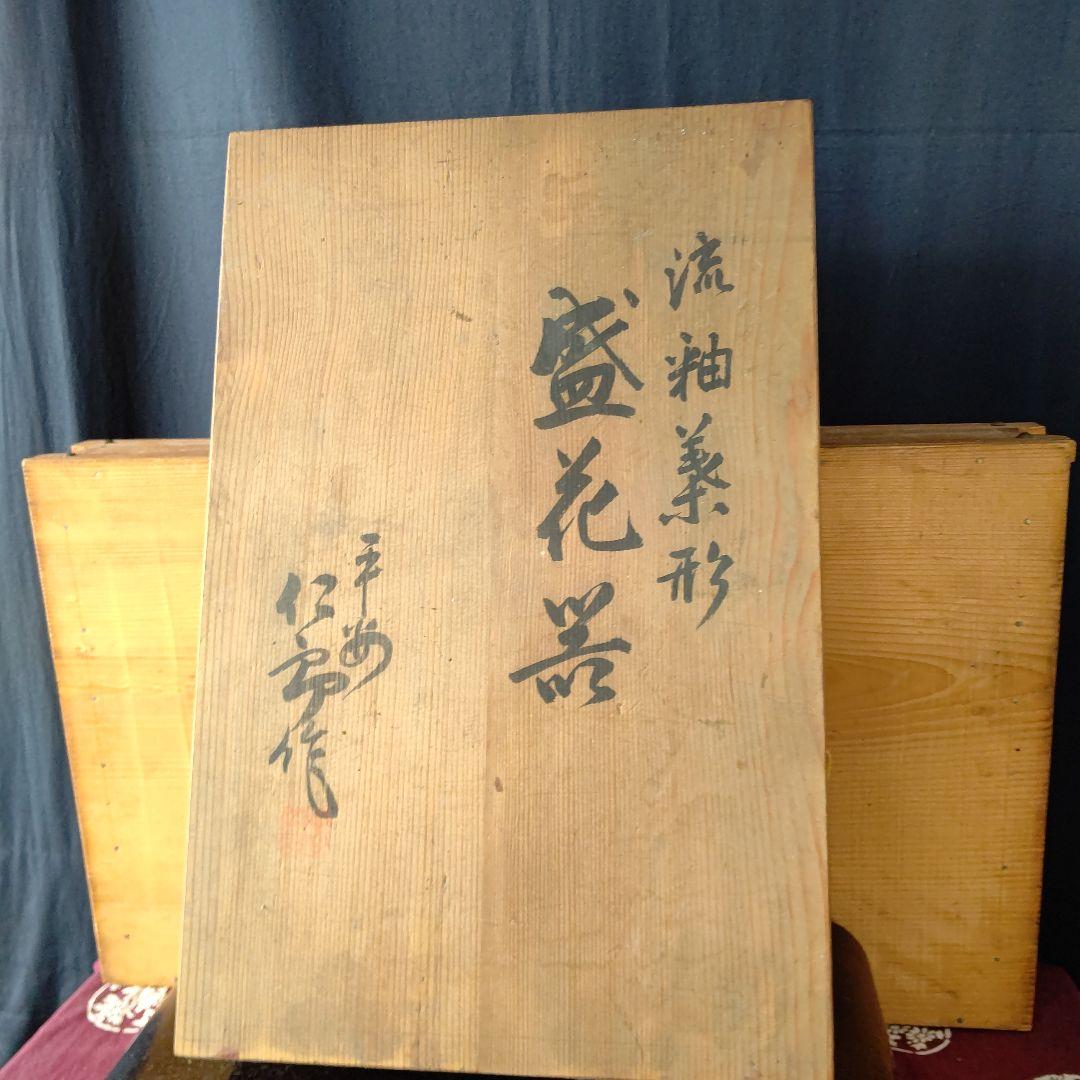 流釉葉形
盛花器
平安
仁鄕作